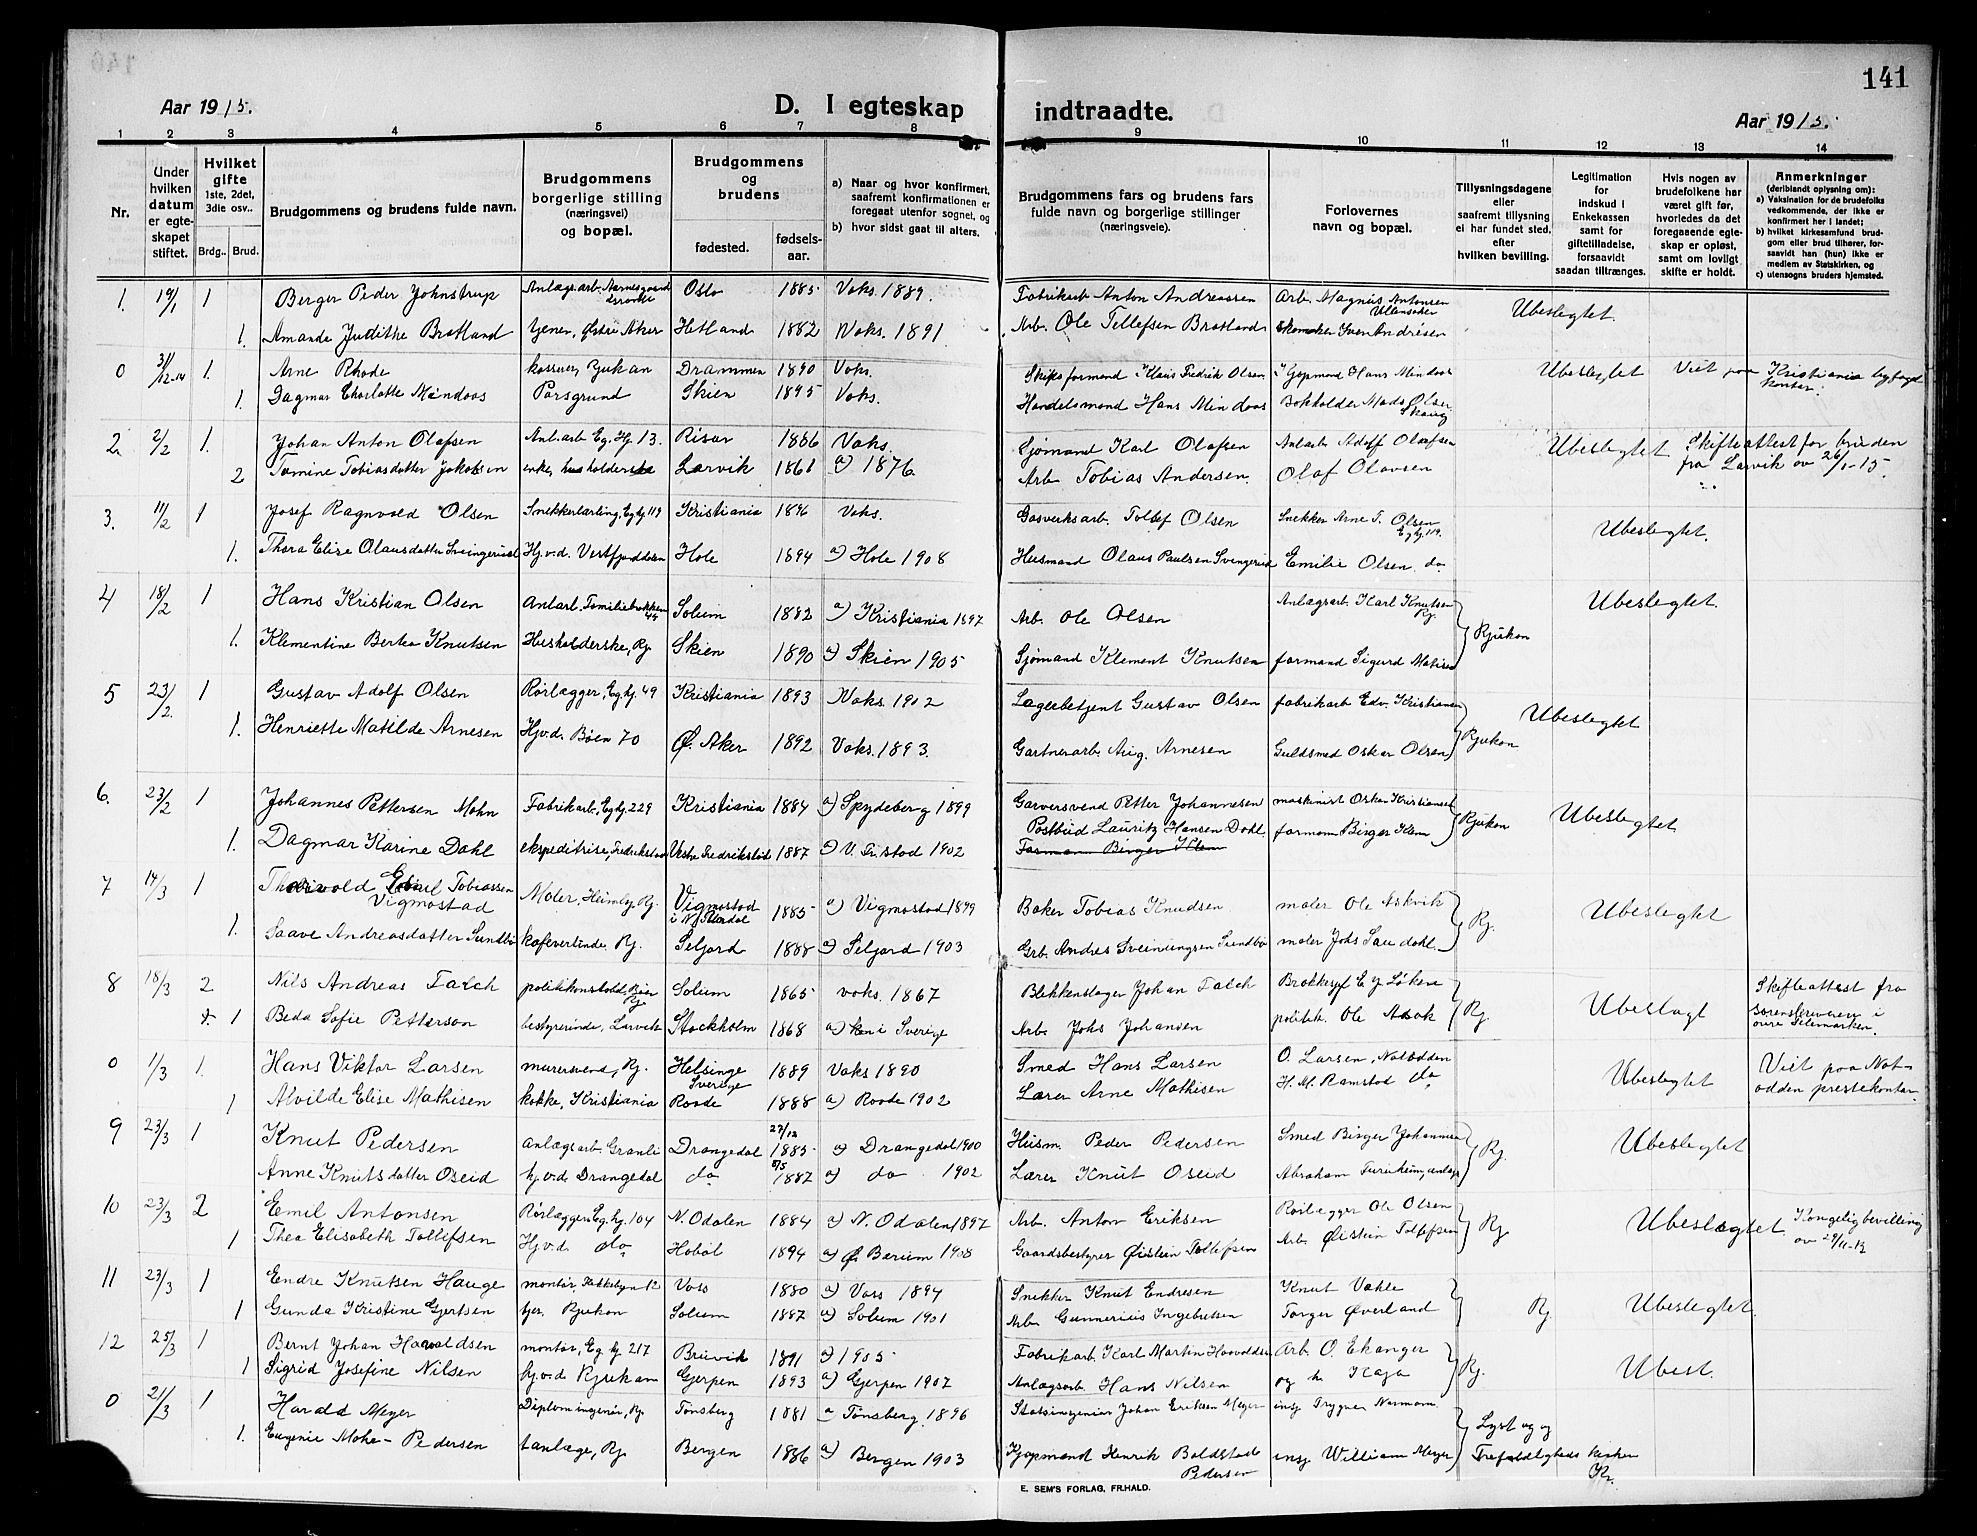 141
Aar 1915.
D. I egteskap indtraadte.
Aar 1915.
1 2 3 4 5 6 7 8 9 10 11 12 13 14
Nr.
Under hvilken datum er egteskapet stiftet.
Hvilket gifte 1ste, 2det, 3die osv..
Brdg. Brud.
Brudgommens og brudens fulde navn.
Brudgommens borgerlige stilling (næringsvei) og bopæl.
Brudgommens og brudens
fødested. fødsels-aar.
a) Naar og hvor konfirmert, saafremt konfirmationen er foregaat utenfor sognet, og
b) hvor sidst gaat til alters.
Brudgommens fars og brudens fars fulde navn og borgerlige stillinger (næringsveie).
Forlovernes navn og bopæl.
Tillysningsdagene eller saafremt tillysning ei har fundet sted, efter hvilken bevilling.
Legitimation for indskud i Enkekassen samt for giftetilladelse, forsaavidt saadan tiltrænges.
Hvis nogen av brudefolkene har været gift før, hvorledes da det foregaaende egteskap er opløst, samt om lovligt skifte er holdt.
Anmerkninger (deriblandt oplysning om):
a) Vaksination for de brudefolks vedkommende, der ikke er konfirmert her i landet;
b) hvilket kirkesamfund brudgom eller brud tilhører, forsaavidt han (hun) ikke er medlem av Statskirken, og
c) utensogns bruders hjemsted.
1. 1 Berger Peder Johnstrup Anlægsarb. Oslo 1885 Vaks. 1889. Fabrikarb Anton Andreassen Arb. Magnus Antonsen Ullensaker Ubeslegtet
1. Amanda Judithe Bratland tjener, Østre Aker Hetland 1882 Vaks. 1891 Arb. Ole Tellefsen Bratland Skomaker Sven Andrésen
0 31/12-14 1. Arne Rhode Rjukan Drammen 1890 Vaks. Skibsformand Klaus Fredrik Olsen Hans Mindaas Ubeslegtet Viet paa Kristiania byfogdkontor.
1. Dagmar Charlotte Mindaas Porsgrund Skien 1895 Vaks. Handelsmand Hans Mindaas Bokholder Mads Olsen Skaug
2. 2/2 1. Johan Anton Olafsen Anl.arb Eg. Hj 13. Risør 1866 Vaks. Sjømand Karl Olafsen Anlarb Adolf Olafsen Ubeslegtet Skifteattest for bruden fra Larvik av 26/1-15
2 Tomine Tobiasdatter Jakobsen enke, husholderske Larvik 1861 a) 1876. Arb Tobias Andersen. Olaf Olavsen
3. 11/2 1 Josef Ragnvald Olsen Snekkerlærling, Eg hj 119 Kristiania 1896 Vaks. Gasverksarb. Tollef Olsen Snekker Arne T. Olsen Eghj 119. Ubeslegtet.
1. Thora Elise Olausdatter Svingerud Hj.v.d. Vestfjorddalen Hole 1894 a) Hole 1908 Husmand Olaus Paulsen Svingerud Emilie Olsen do
4 18/2 1 Hans Kristian Olsen Anlarb. Familiebrakken 44 Solum 1882 a) Kristiania 1897 Arb. Ole Olsen Anlægsarb. Karl Knutsen Rj. Rjukan Ubeslegtet.
1. Klementine Bertea Knutsen Husholderske, Rj. Skien 1890 a) Skien 1905 Sjømand Klement Knutsen formand Sigurd
5 23/2. 1 Gustav Adolf Olsen Rørlægger, Eg hj. 49 Kristiania 1893 Vaks. 1902 Lagerbetjent Gustav Olsen fabrikarb Edv. Kristiansen Rjukan Ubeslegtet
1. Henriette Matilde Arnesen Hj.v.d. Bøen 70 Ø. Aker 1892 Vaks. 1893. Gartnerarb. Aug. Arnesen Guldsmed Oskar Olsen
6. 23/2 1 Johannes Pettersen Mohn Fabrikarb, Eg hj. 229 Kristiania 1884 a) Spydeberg 1899 Garversvend Petter Johannesen maskinist Oskar Kristiansen Rjukan Ubeslegtet
1. Dagmar Karine Dahl ekspeditrise, Fredrikstad Vestre Fredrikstad 1887 a) V. Fr.stad 1902 Postbud Lauritz Hansen Dahl. formann Birger Klem
Formann Birger Klem
7 14/3 1 Thorvald Emil Tobiassen Vigmostad Maler, Heimly, Rj. Vigmostad 1885 a) Vigmostad 1899 Baker Tobias Knudsen maler Ole Askvik Rj. Ubeslegtet
1. Saave Andreasdatter Sundbø kafevertinde, Rj. Seljord 1888 a) Seljord 1903 Grb. Andres Sveinungsen Sundbø maler Johs Saudahl.
8 18/3 2 Nils Andreas Falch politikonstabel, Rj. Solum 1865 voks. 1867 Blikkenslager Johan Falch E. J. Løken Rj. Ubeslegt Skifteattest fra sorenskriveren i øvre Telemarken.
1 Beda Sofie Petterson bestyrerinde, Larvik Stockholm 1868 a) Sverige Arb. Johs Johansen politik. Ole Aasok
0 1/3 1. Hans Viktor Larsen murersvend, Rj. Helsinge Sverige 1889 Vaks 1890 Smed Hans Larsen O. Larsen, Notodden Ubeslegtet Viet paa Notodden prestekontor.
1 Alvilde Elise Mathisen kokke, Kristiania Raade 1888 a) Raade 1902 Lærer Arne Mathisen H. M. Ramstad do
9 23/3 1 Knut Pedersen anlægsarb. Granli Drangedal 27/12 1885 a) Drangedal 1900 Husm. Peder Pedersen Smed Birger Johannsen Rj. Ubeslegtet
Anne Knutsdatter Oseid hj.v.d. Drangedal do 5/5 1887 a) do 1902 Lærer Knut Oseid Abraham
10 23/3 2 Emil Antonsen Rørlægger, Eg. hj. 104 N. Odalen 1884 a) N. Odalen 1897 Arb. Anton Eriksen Rørlægger Ole Olsen Rj Ubeslegtet Kongelig bevilling av 29/11-12
1 Thea Elisabeth Tollefsen Hj.v.d. do Hobøl 1894 a) Ø. Bærum 1908 Gaardsbestyrer Øistein Tollefsen Arb Øistein Tollefsen
11 23/3 1 Endre Knutsen Hauge montør, 12 Voss 1880 a) Voss 1894 Snekker Knut Endresen Knut Vakle Rj Ubeslegtet.
1 Gunda Kristine Gjertsen tjen. Rjukan Solum 1887 a) Solum 1901 Arb. Gunnerius Ingebretsen Torger Øverland
12 25/3 1 Bernt Johan Haavaldsen montør, Eg hj 217 Bruvik 1891 a) 1905 Fabrikarb. Karl Martin Haavaldsen Arb O. Ekanger Rj. Ubesl.
1 Sigrid Josefine Nilsen hj.v.d Rjukan Gjerpen 1893 a) Gjerpen 1907 Anlægsarb. Hans Nilsen og h. Kaja
0 21/3 1 Harald Meyer Diplomingeniør, Rj. Tønsberg 1881 a Tønsberg 1896 Statsingeniør Johan Eriksen Meyer insj Trygve Normann. Lyst og
1. Eugenie Mohr-Pedersen tanlæge, Rj. Bergen 1886 a) Bergen 1903 Kjøpmand Henrik Boldstads Pedersen insj. William Meyer Trefoldigheds kirken Kr.
E. SEM'S FORLAG, FR.HALD.